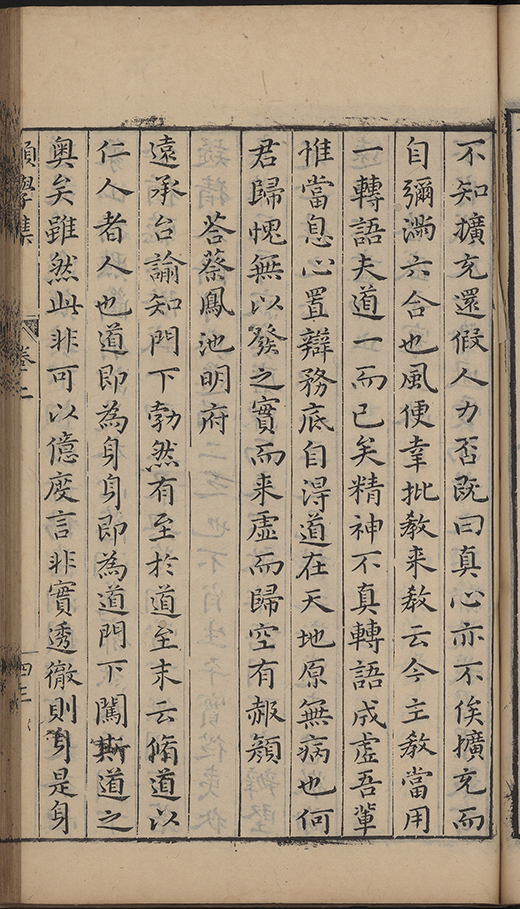 不知擴充還假人力否既曰真心亦不俟擴充而
自彌滿六合也風便幸批教来教云今主教當用
一轉語夫道一而已矣精神不真轉語成虛吾輩
惟當息心置辯務底自得道在天地原無病也何
君歸愧無以發之實而来虛而歸空有赧顏
荅蔡鳳池明府
遠承台諭知門下勃然有至於道至末云脩道以
仁人者人也道即為身身即為道門下闖斯道之
奥矣雖然此非可以億度言非實透徹則身是身
學集
卷之